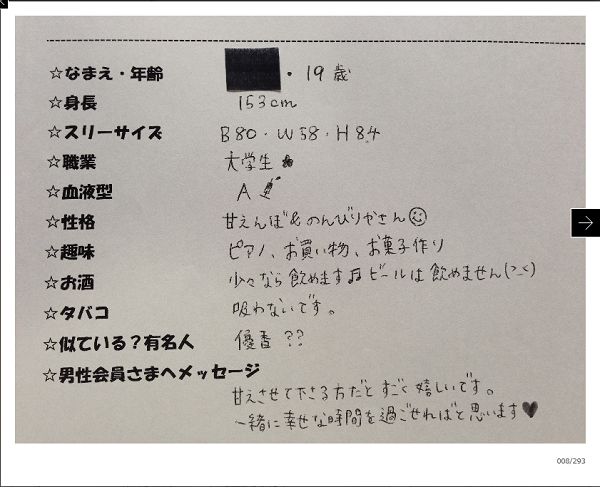 ☆なまえ・年齢 ・19歳
☆身長 153cm
☆スリーサイズ B80・W58・H84
☆職業 大学生
☆血液型 A
☆性格 甘えんぼ&のんびりやさん
☆趣味 ピアノ、お買い物、お菓子作り
☆お酒 少々なら飲めます♫ビールは飲めません(>_<)
☆タバコ 吸わないです。
☆似ている？有名人 優香 ??
☆男性会員さまへメッセージ
甘えさせて下さる方だとすごく嬉しいです。
一緒に幸せな時間を過ごせればと思います♥
008/293